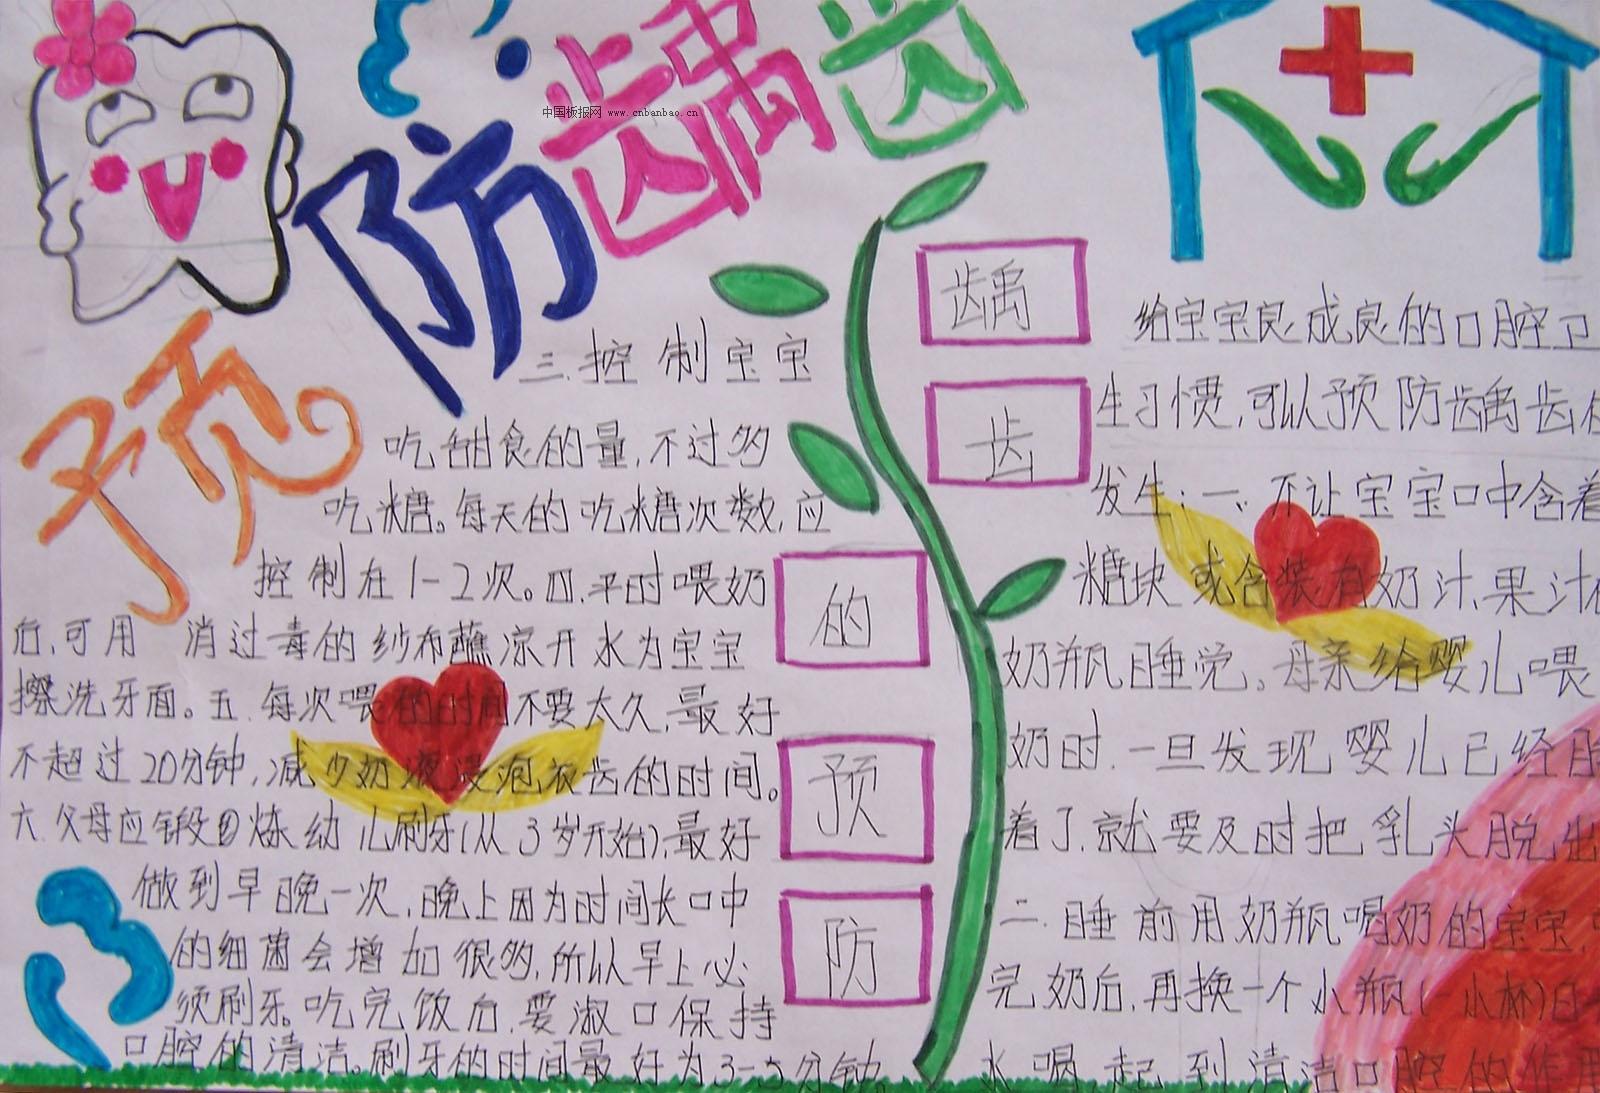 预防龋齿
中国板报网 www.cnbanbao.cn
龋
齿
的
预
防
给宝宝良成良的口腔卫
生习惯,可以预防龋齿
发生:一、不让宝宝口中含着
糖块或含装有奶汁、果汁
奶瓶睡觉。母亲给婴儿喂
奶时,一旦发现婴儿已经
着了,就要及时把乳头脱出
二、睡前用奶瓶喝奶的宝宝,
完奶后,再换一个小瓶(一小杯)白
水喝,起到清洁口腔的作用
三、控制宝宝
吃甜食的量,不过多
吃糖。每天的吃糖次数,应
控制在1-2次。四、平时喂奶
后,可用 消过毒的纱布蘸凉开水为宝宝
擦洗牙面。五、每次喂的时间不要太久,最好
不超过20分钟,减少奶液浸泡衣齿的时间。
六、父母应锻炼幼儿刷牙(从3岁开始),最好
做到早晚一次,晚上因为时间长口中
的细菌会增加很多,所以早上必
须刷牙。吃完饭后,要淑口保持
口腔的清洁。刷牙的时间最好为3-5分钟。